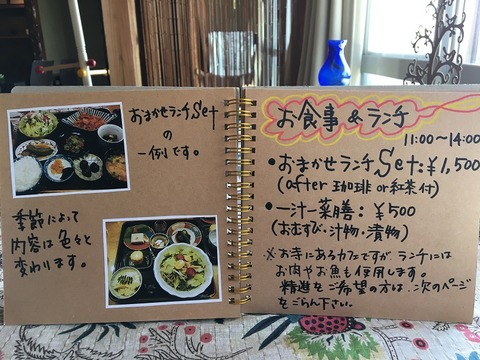 おまかせランチSet
の
一例です。
季節によって
内容は色々と
変わります。
お食事＆ランチ
11:00〜14:00
•おまかせランチSet:¥1,500
(after珈琲or紅茶付)
•一汁一菜膳：¥500
(おむすび・汁物・漬物)
※お寺にあるカフェですが、ランチには
お肉やお魚も使用します。
精進をご希望の方は、次のページ
をごらん下さい。